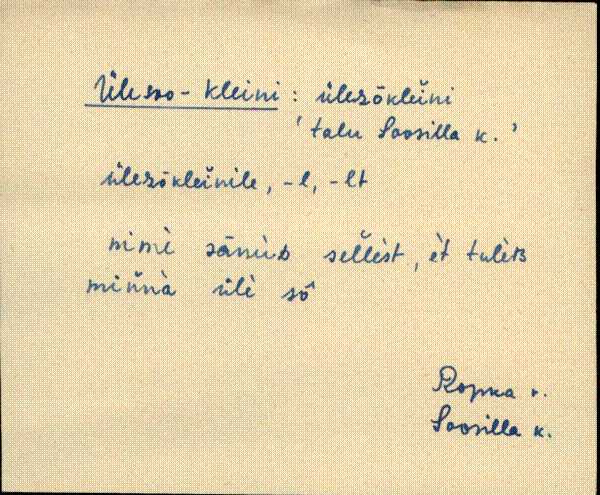 Ülesoo-kleini : ülezōkleĭni
'talu Soosilla k.'
ülezōkleĭnile, -l, -lt
nimè sānùᴅ sellèst, èt tulèʙ
minnà ülè sō
Ropka v.
Soosilla k.